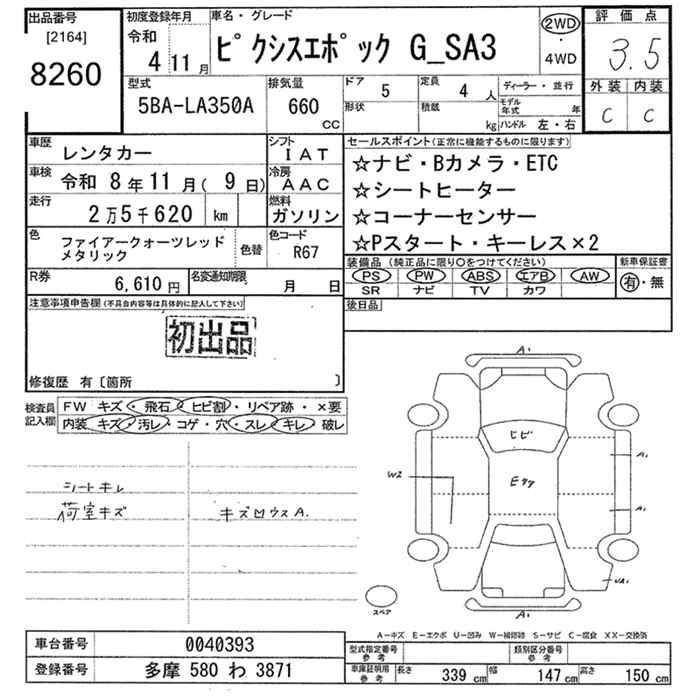 出品番号
[2164]
8260
初度登録年月
令和
4 11 月
車名・グレード
ピクシスエポック G_SA3
2WD
・
4WD
評価点
3.5
外装 内装
C C
型式
5BA-LA350A
排気量
660
CC
ドア 5
形状
定員 4 人
積載 kg
ディーラー・並行
モデル年式 年
ハンドル 左・右
車歴 レンタカー
シフト
IAT
車検 令和 8年11月(9日)
冷房
AAC
走行
2万5千620 km
燃料
ガソリン
色
ファイアークォーツレッド
メタリック
色替
色コード
R67
R券
6,610 円
名変通知期限
月 日
セールスポイント(正常に機能するものに限ります)
☆ナビ・Bカメラ・ETC
☆シートヒーター
☆コーナーセンサー
☆Pスタート・キーレス×2
装備品(純正品に限り○をつけてください)
新車保証書
PS PW ABS エアB AW
有・無
SR ナビ TV カワ
後日品
注意事項申告欄(不具合内容等は具体的に記入して下さい)
初出品
修復歴 有〔箇所 〕
検査員
記入欄
FW キズ・飛石・ヒビ割・リペア跡・×要
内装 キズ・汚レ・コゲ・穴・スレ・キレ・破レ
シートキレ
荷室キズ
キズ凹ウスA.
A1
ヒビ
W2
A1
A1
UA1
A1
スペア
A−キズ E−エクボ U−凹み W−補修跡 S−サビ C−腐食 XX−交換済
車台番号 0040393
登録番号 多摩 580 わ 3871
型式指定番号
参考
類別区分番号
参考
車庫証明用
参考
長さ 339 cm 幅 147 cm 高さ 150 cm